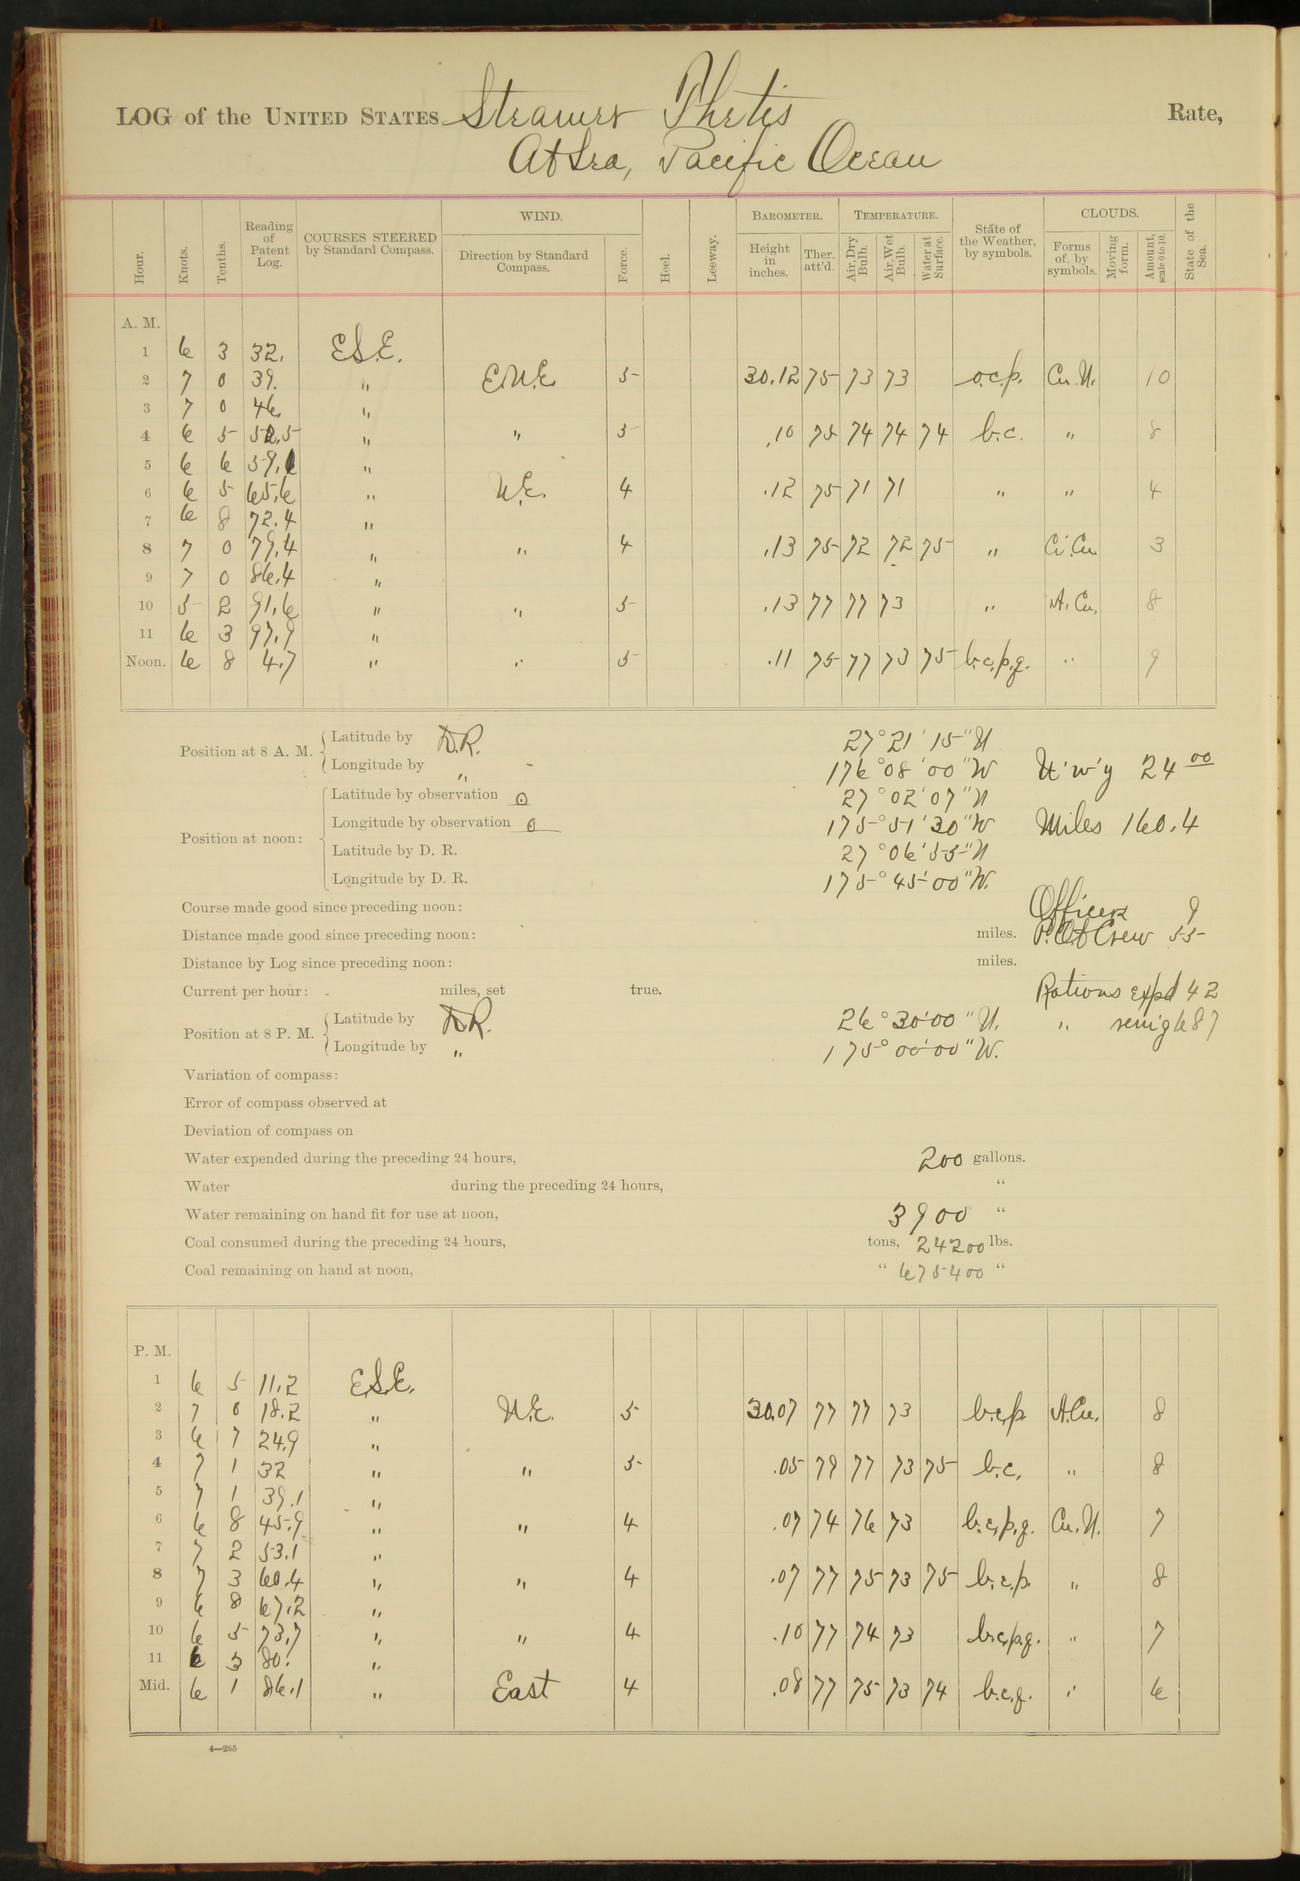 LOG of the UNITED STATES Steamer Thetis Rate,
At Sea, Pacific Ocean
Hour. Knots. Tenths. Reading of Patent Log. COURSES STEERED by Standard Compass. WIND. Direction by Standard Compass. Force. Heel. Leeway. BAROMETER. Height in inches. Ther. att'd. TEMPERATURE. Air, Dry Bulb. Air, Wet Bulb. Water at Surface. State of the Weather, by symbols. CLOUDS. Forms of, by symbols. Moving form. Amount, scale 0 to 10. State of the Sea.
A. M.
1 6 3 32. E.S.E.
2 7 0 39. " E.N.E. 5 30.12 75 73 73 o.c.p. Cu.N. 10
3 7 0 46. "
4 6 5 52.5 " " 5 .10 75 74 74 74 b.c. " 8
5 6 6 59.1 "
6 6 5 65.6 " N.E. 4 .12 75 71 71 " " 4
7 6 8 72.4 "
8 7 0 79.4 " " 4 .13 75 72 72 75 " Ci.Cu 3
9 7 0 86.4 "
10 5 2 91.6 " " 5 .13 77 77 73 " A.Cu. 8
11 6 3 97.9 "
Noon. 6 8 4.7 " " 5 .11 75 77 73 75 b.c.p.q. " 9
Position at 8 A. M. Latitude by D.R. 27° 21' 15" N
Longitude by " 176° 08' 00" W N'w'y 24 00
Position at noon: Latitude by observation ⊙ 27° 02' 07" N
Longitude by observation ⊙ 175° 51' 30" W Miles 160.4
Latitude by D. R. 27° 06' 55" N
Longitude by D. R. 175° 45' 00" W.
Course made good since preceding noon: Officers 9
Distance made good since preceding noon: miles. P.O. & Crew 55
Distance by Log since preceding noon: miles.
Current per hour: miles, set true. Rations exp'd 42
Position at 8 P. M. Latitude by D.R. 26° 30' 00" N. " remig 687
Longitude by " 175° 00' 00" W.
Variation of compass:
Error of compass observed at
Deviation of compass on
Water expended during the preceding 24 hours, 200 gallons.
Water during the preceding 24 hours, "
Water remaining on hand fit for use at noon, 3900 "
Coal consumed during the preceding 24 hours, tons, 24200 lbs.
Coal remaining on hand at noon, " 675400 "
P. M.
1 6 5 11.2 E.S.E.
2 7 0 18.2 " N.E. 5 30.07 77 77 73 b.c.p. A.Cu. 8
3 6 7 24.9 "
4 7 1 32 " " 5 .05 79 77 73 75 b.c. " 8
5 7 1 39.1 "
6 6 8 45.9 " " 4 .07 74 76 73 b.c.p.q. Cu.N. 7
7 7 2 53.1 "
8 7 3 60.4 " " 4 .07 77 75 73 75 b.c.p. " 8
9 6 8 67.2 "
10 6 5 73.7 " " 4 .10 77 74 73 b.c.p.q. " 7
11 6 3 80. "
Mid. 6 1 86.1 " East 4 .08 77 75 73 74 b.c.q. " 6
4—265